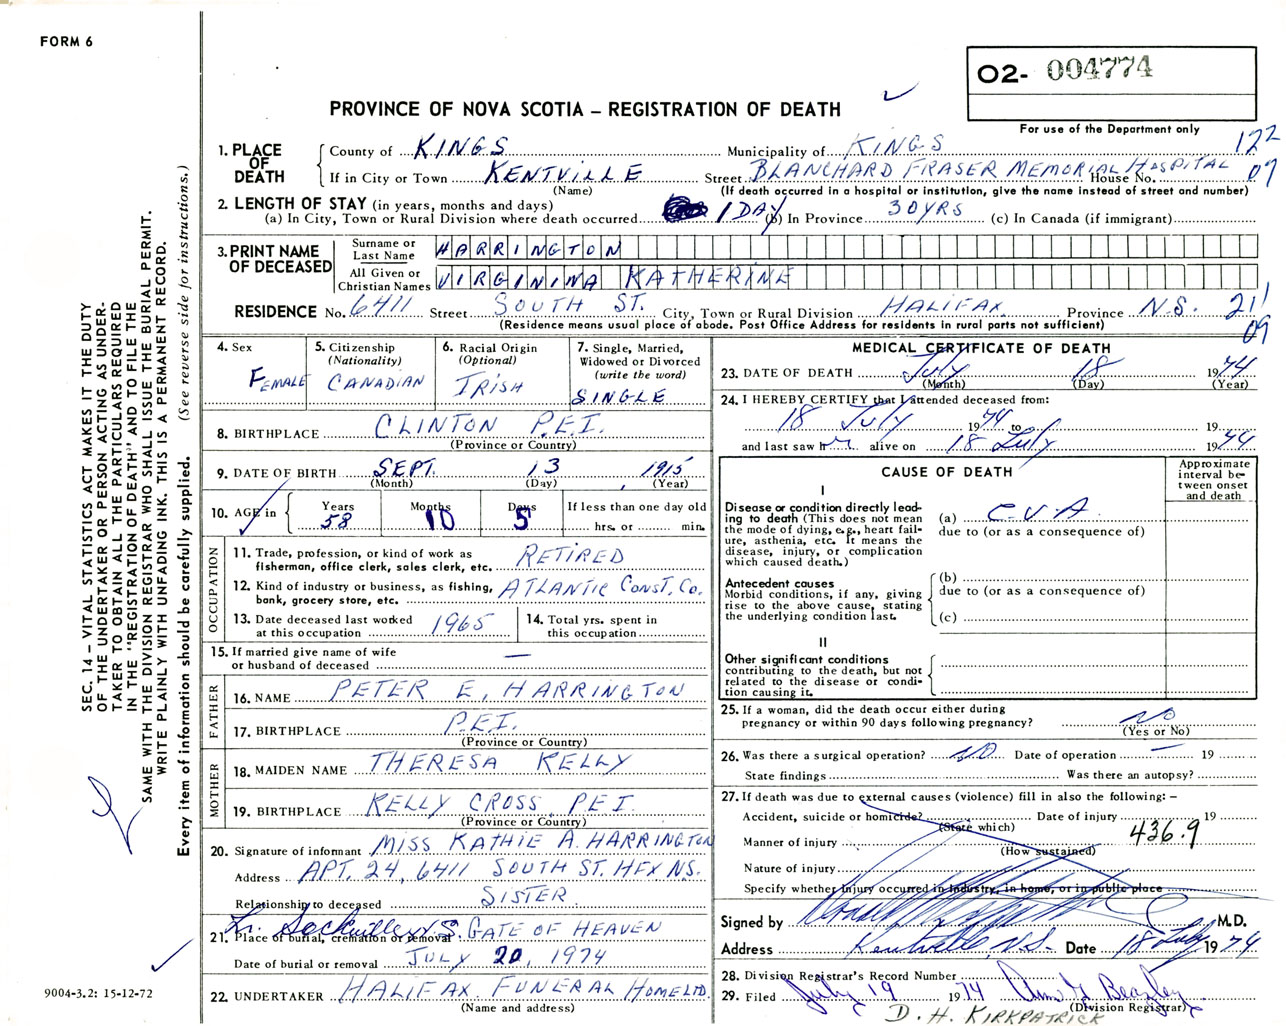 FORM 6
O2- 004774
PROVINCE OF NOVA SCOTIA – REGISTRATION OF DEATH
For use of the Department only
1. PLACE OF DEATH
County of KINGS Municipality of KINGS 122
If in City or Town KENTVILLE Street BLANCHARD FRASER MEMORIAL HOSPITAL House No. 07
(Name) (If death occurred in a hospital or institution, give the name instead of street and number)
2. LENGTH OF STAY (in years, months and days)
(a) In City, Town or Rural Division where death occurred 1 DAY (b) In Province 30 YRS (c) In Canada (if immigrant)
3. PRINT NAME OF DECEASED
Surname or Last Name HARRINGTON
All Given or Christian Names VIRGININA KATHERINE
RESIDENCE No. 6411 Street SOUTH ST. City, Town or Rural Division HALIFAX Province N.S. 21
09
(Residence means usual place of abode. Post Office Address for residents in rural parts not sufficient)
4. Sex FEMALE
5. Citizenship (Nationality) CANADIAN
6. Racial Origin (Optional) IRISH
7. Single, Married, Widowed or Divorced (write the word) SINGLE
8. BIRTHPLACE CLINTON P.E.I.
(Province or Country)
9. DATE OF BIRTH SEPT. 13 1915
(Month) (Day) (Year)
10. AGE in Years 58 Months 10 Days 5 If less than one day old hrs. or min.
OCCUPATION
11. Trade, profession, or kind of work as fisherman, office clerk, sales clerk, etc. RETIRED
12. Kind of industry or business, as fishing, bank, grocery store, etc. ATLANTIC CONST. Co.
13. Date deceased last worked at this occupation 1965
14. Total yrs. spent in this occupation
15. If married give name of wife or husband of deceased —
FATHER
16. NAME PETER E. HARRINGTON
17. BIRTHPLACE P.E.I.
(Province or Country)
MOTHER
18. MAIDEN NAME THERESA KELLY
19. BIRTHPLACE KELLY CROSS P.E.I.
(Province or Country)
20. Signature of informant MISS KATHIE A. HARRINGTON
Address APT. 24, 6411 SOUTH ST. HFX N.S.
Relationship to deceased SISTER
21. Place of burial, cremation or removal Lr. Sackville N.S. GATE OF HEAVEN
Date of burial or removal JULY 20, 1974
22. UNDERTAKER HALIFAX FUNERAL HOME LTD.
(Name and address)
MEDICAL CERTIFICATE OF DEATH
23. DATE OF DEATH July 18 1974
(Month) (Day) (Year)
24. I HEREBY CERTIFY that I attended deceased from:
18 July 1974 to 19
and last saw h alive on 18 July 1974
CAUSE OF DEATH
Approximate interval between onset and death
I
Disease or condition directly leading to death (This does not mean the mode of dying, e.g., heart failure, asthenia, etc. It means the disease, injury, or complication which caused death.)
(a) C.V.A.
due to (or as a consequence of)
Antecedent causes
Morbid conditions, if any, giving rise to the above cause, stating the underlying condition last.
(b)
due to (or as a consequence of)
(c)
II
Other significant conditions contributing to the death, but not related to the disease or condition causing it.
25. If a woman, did the death occur either during pregnancy or within 90 days following pregnancy? no
(Yes or No)
26. Was there a surgical operation? no Date of operation — 19
State findings Was there an autopsy?
27. If death was due to external causes (violence) fill in also the following: –
Accident, suicide or homicide? Date of injury 19
(State which)
Manner of injury 436.9
(How sustained)
Nature of injury
Specify whether injury occurred in industry, in home, or in public place
Signed by M.D.
Address Kentville, N.S. Date 18 July 1974
28. Division Registrar's Record Number
29. Filed July 19 1974 Ann G Beazley
(Division Registrar)
D. H. KIRKPATRICK
SEC. 14 – VITAL STATISTICS ACT MAKES IT THE DUTY
OF THE UNDERTAKER OR PERSON ACTING AS UNDER-
TAKER TO OBTAIN ALL THE PARTICULARS REQUIRED
IN THE "REGISTRATION OF DEATH" AND TO FILE THE
SAME WITH THE DIVISION REGISTRAR WHO SHALL ISSUE THE BURIAL PERMIT.
WRITE PLAINLY WITH UNFADING INK. THIS IS A PERMANENT RECORD.
Every item of information should be carefully supplied. (See reverse side for instructions.)
9004-3.2: 15-12-72